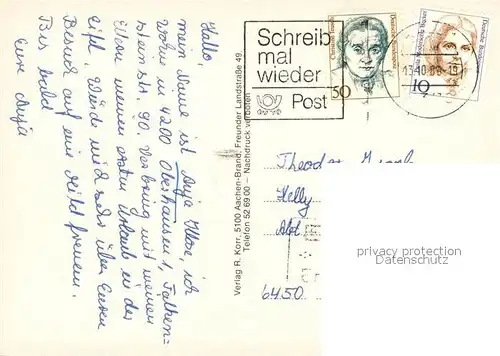 Hallo,
mein Name ist Anja Klose, ich
wohne in 4200 Oberhausen 1, Falken-
steinstr. 90. Verbring mit meinen
Eltern meinen ersten Urlaub in der
Eifel. Würde mich sehr über Euren
Besuch auf ein Bild freuen.
Bis bald
Eure Anja
Verlag R. Korr, 5100 Aachen-Brand, Freunder Landstraße 49
Telefon 52 69 00 – Nachdruck verboten
Schreib
mal
wieder
Post
50
Deutsche Bundespost
10
Theodor
Kelly
Abt
6450
privacy protection
Datenschutz